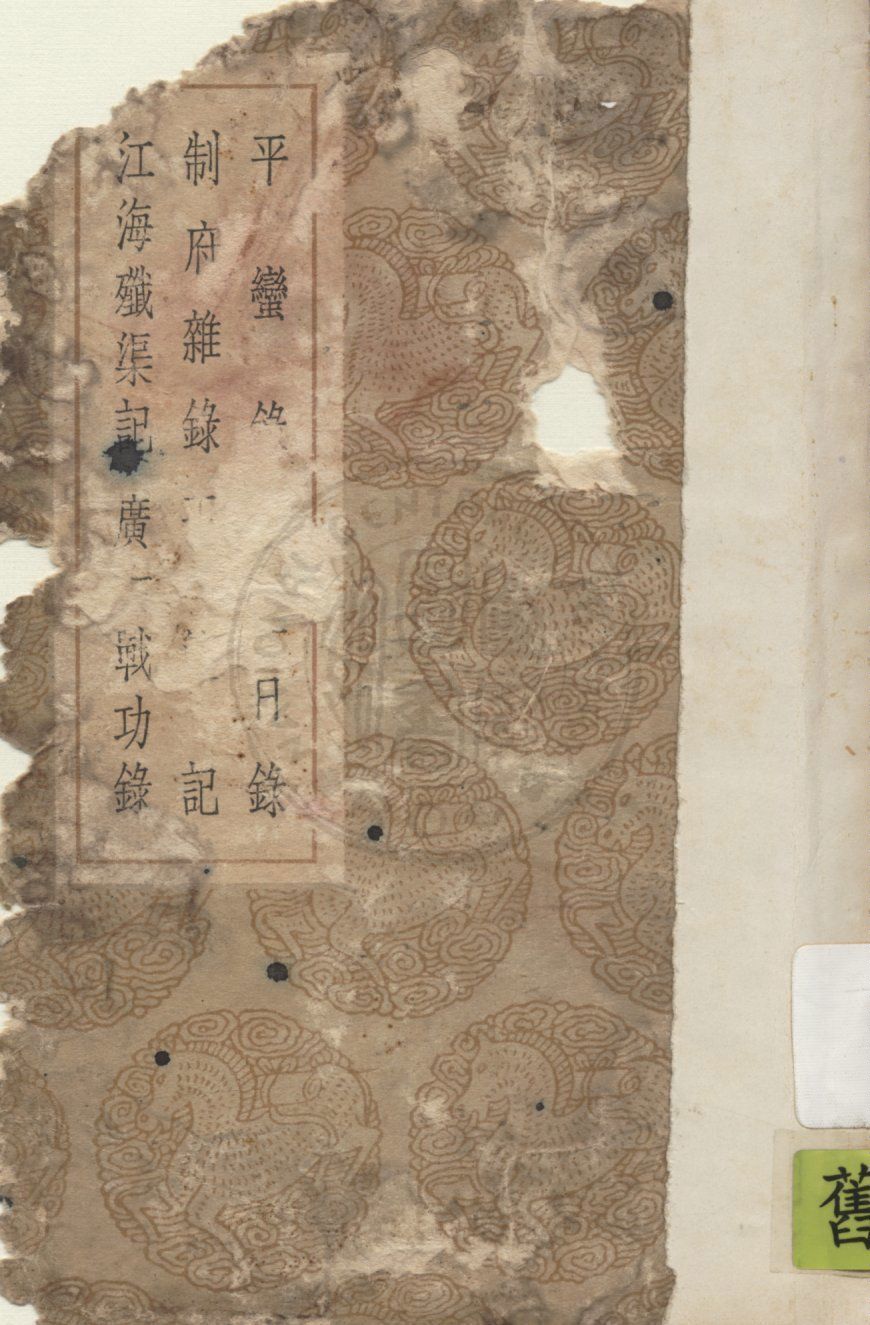 平蠻 月錄
制府雜錄 記
江海殲渠記 廣 戰功錄
舊